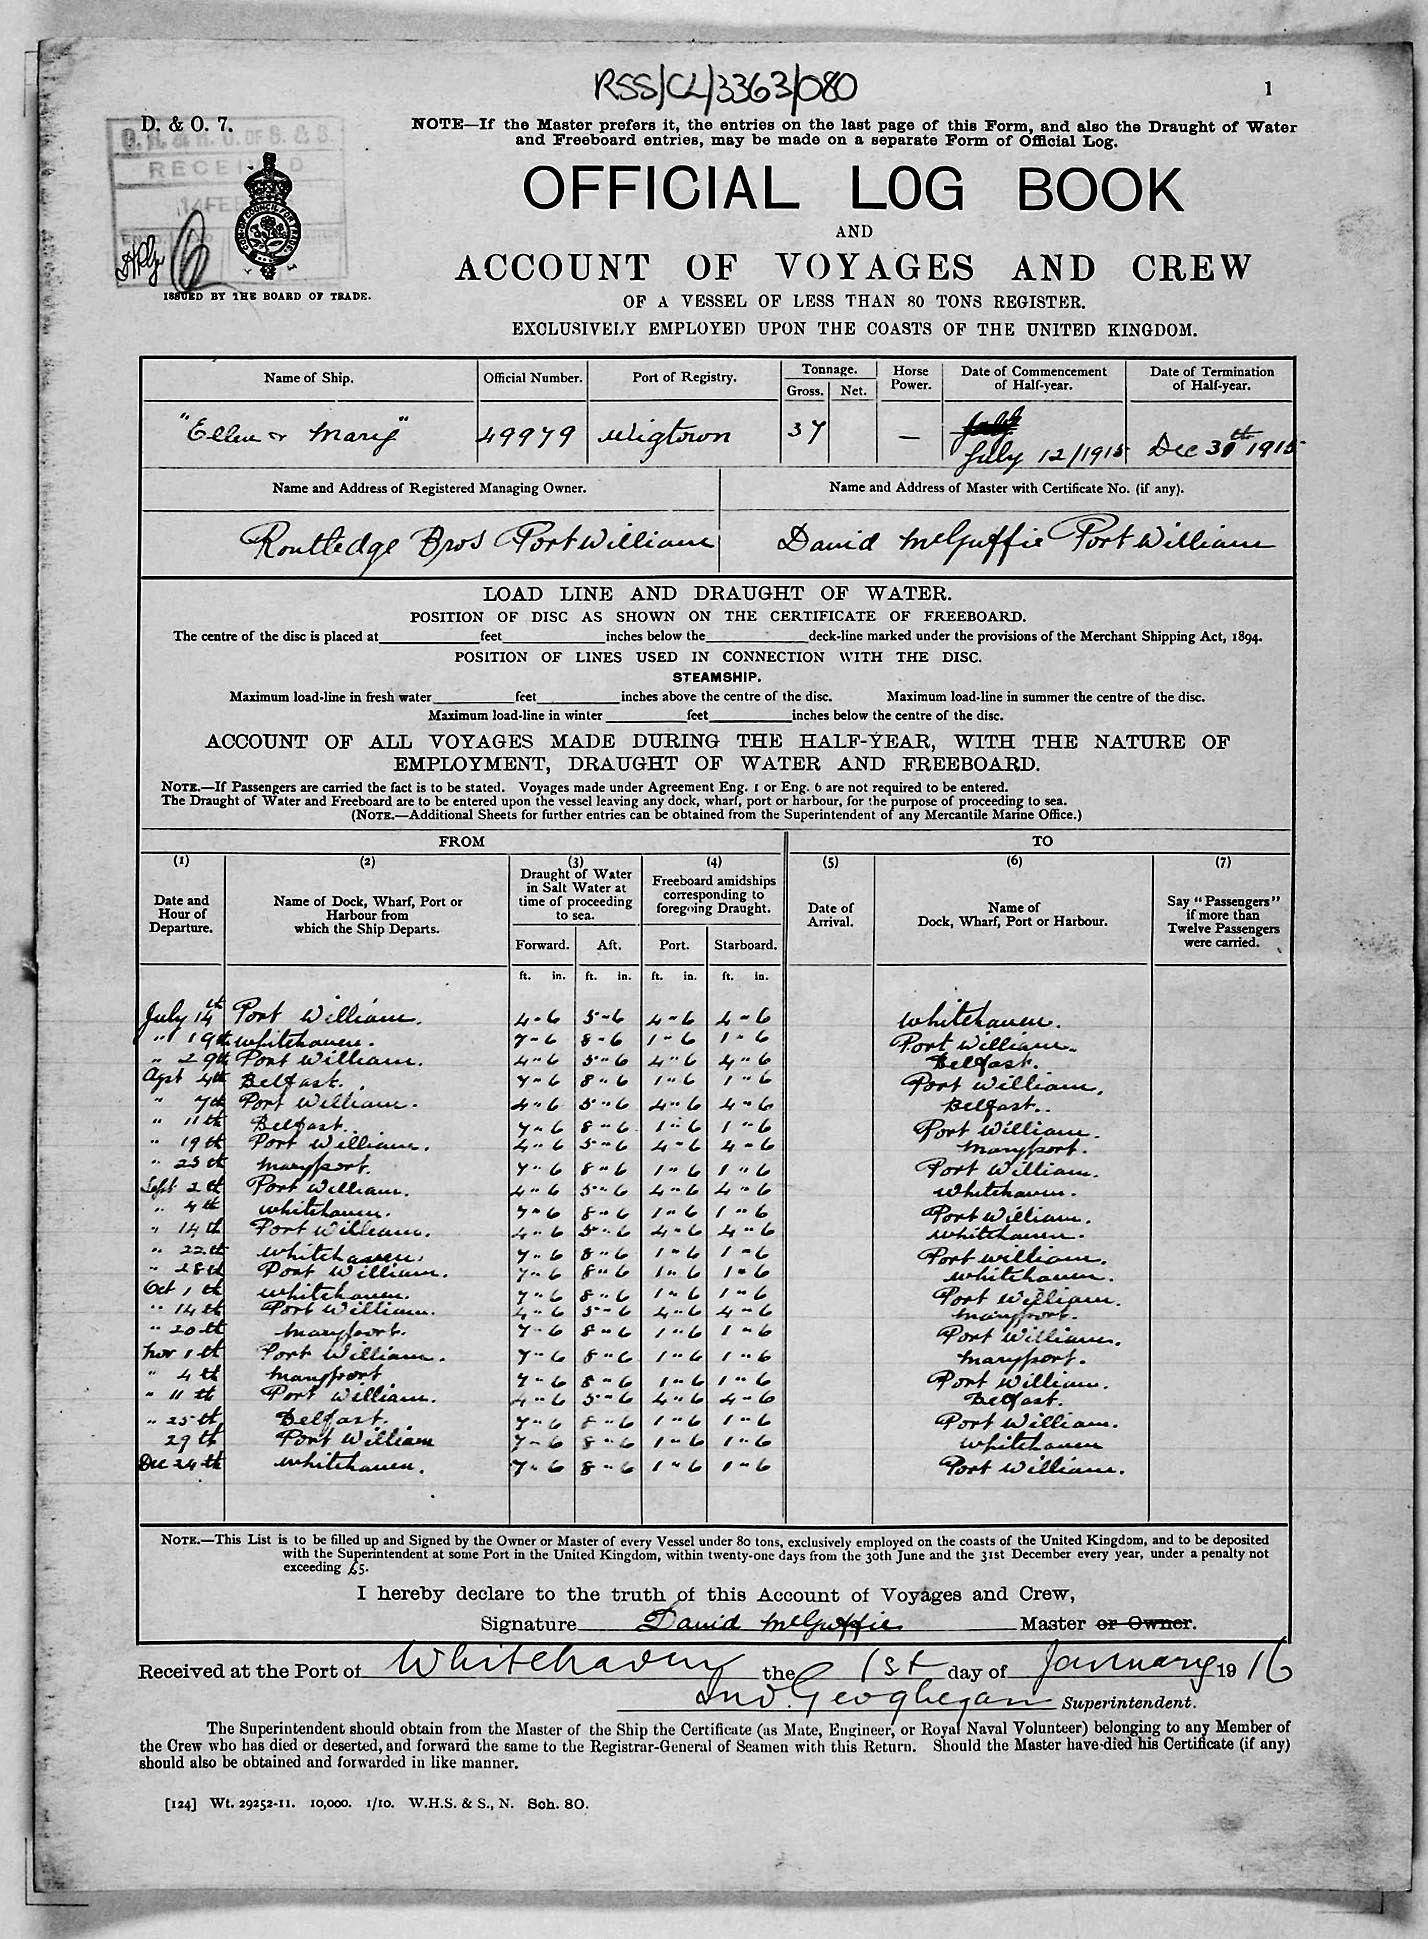 RSS/CL/3363/080
1
D. & O. 7.
NOTE—If the Master prefers it, the entries on the last page of this Form, and also the Draught of Water
and Freeboard entries, may be made on a separate Form of Official Log.
RECEIVED
14 FEB
OFFICIAL LOG BOOK
AND
ACCOUNT OF VOYAGES AND CREW
ISSUED BY THE BOARD OF TRADE.
OF A VESSEL OF LESS THAN 80 TONS REGISTER.
EXCLUSIVELY EMPLOYED UPON THE COASTS OF THE UNITED KINGDOM.
Name of Ship. Official Number. Port of Registry. Tonnage. Gross. Net. Horse Power. Date of Commencement of Half-year. Date of Termination of Half-year.
"Ellen & Mary" 49979 Wigtown 37 — July 12/1915 Dec 31th 1915
Name and Address of Registered Managing Owner. Name and Address of Master with Certificate No. (if any).
Routledge Bros Port William David McGuffie Port William
LOAD LINE AND DRAUGHT OF WATER.
POSITION OF DISC AS SHOWN ON THE CERTIFICATE OF FREEBOARD.
The centre of the disc is placed at feet inches below the deck-line marked under the provisions of the Merchant Shipping Act, 1894.
POSITION OF LINES USED IN CONNECTION WITH THE DISC.
STEAMSHIP.
Maximum load-line in fresh water feet inches above the centre of the disc. Maximum load-line in summer the centre of the disc.
Maximum load-line in winter feet inches below the centre of the disc.
ACCOUNT OF ALL VOYAGES MADE DURING THE HALF-YEAR, WITH THE NATURE OF
EMPLOYMENT, DRAUGHT OF WATER AND FREEBOARD.
NOTE.—If Passengers are carried the fact is to be stated. Voyages made under Agreement Eng. 1 or Eng. 6 are not required to be entered.
The Draught of Water and Freeboard are to be entered upon the vessel leaving any dock, wharf, port or harbour, for the purpose of proceeding to sea.
(NOTE.—Additional Sheets for further entries can be obtained from the Superintendent of any Mercantile Marine Office.)
FROM TO
(1) (2) (3) (4) (5) (6) (7)
Date and Hour of Departure. Name of Dock, Wharf, Port or Harbour from which the Ship Departs. Draught of Water in Salt Water at time of proceeding to sea. Freeboard amidships corresponding to foregoing Draught. Date of Arrival. Name of Dock, Wharf, Port or Harbour. Say "Passengers" if more than Twelve Passengers were carried.
Forward. Aft. Port. Starboard.
ft. in. ft. in. ft. in. ft. in.
July 14th Port William. 4-6 5-6 4-6 4-6 Whitehaven.
" 19th Whitehaven. 7-6 8-6 1-6 1-6 Port William.
" 29th Port William. 4-6 5-6 4-6 4-6 Belfast.
Agst 4th Belfast. 7-6 8-6 1-6 1-6 Port William.
" 7th Port William. 4-6 5-6 4-6 4-6 Belfast.
" 11th Belfast. 7-6 8-6 1-6 1-6 Port William.
" 19th Port William. 4-6 5-6 4-6 4-6 Maryport.
" 25th Maryport. 7-6 8-6 1-6 1-6 Port William.
Sept 2th Port William. 4-6 5-6 4-6 4-6 Whitehaven.
" 4th Whitehaven. 7-6 8-6 1-6 1-6 Port William.
" 14th Port William. 4-6 5-6 4-6 4-6 Whitehaven.
" 22th Whitehaven. 7-6 8-6 1-6 1-6 Port William.
" 28th Port William. 7-6 8-6 1-6 1-6 Whitehaven.
Oct 1th Whitehaven. 7-6 8-6 1-6 1-6 Port William.
" 14th Port William. 4-6 5-6 4-6 4-6 Maryport.
" 20th Maryport. 7-6 8-6 1-6 1-6 Port William.
Nov 1th Port William. 7-6 8-6 1-6 1-6 Maryport.
" 4th Maryport 7-6 8-6 1-6 1-6 Port William.
" 11th Port William. 4-6 5-6 4-6 4-6 Belfast.
" 25th Belfast. 7-6 8-6 1-6 1-6 Port William.
29th Port William 7-6 8-6 1-6 1-6 Whitehaven
Dec 24th Whitehaven. 7-6 8-6 1-6 1-6 Port William.
NOTE.—This List is to be filled up and Signed by the Owner or Master of every Vessel under 80 tons, exclusively employed on the coasts of the United Kingdom, and to be deposited
with the Superintendent at some Port in the United Kingdom, within twenty-one days from the 30th June and the 31st December every year, under a penalty not
exceeding £5.
I hereby declare to the truth of this Account of Voyages and Crew,
Signature David McGuffie Master or Owner.
Received at the Port of Whitehaven the 1st day of January 1916
Jno. Geoghegan Superintendent.
The Superintendent should obtain from the Master of the Ship the Certificate (as Mate, Engineer, or Royal Naval Volunteer) belonging to any Member of
the Crew who has died or deserted, and forward the same to the Registrar-General of Seamen with this Return. Should the Master have died his Certificate (if any)
should also be obtained and forwarded in like manner.
[124] Wt. 29252-11. 10,000. 1/10. W.H.S. & S., N. Sch. 80.